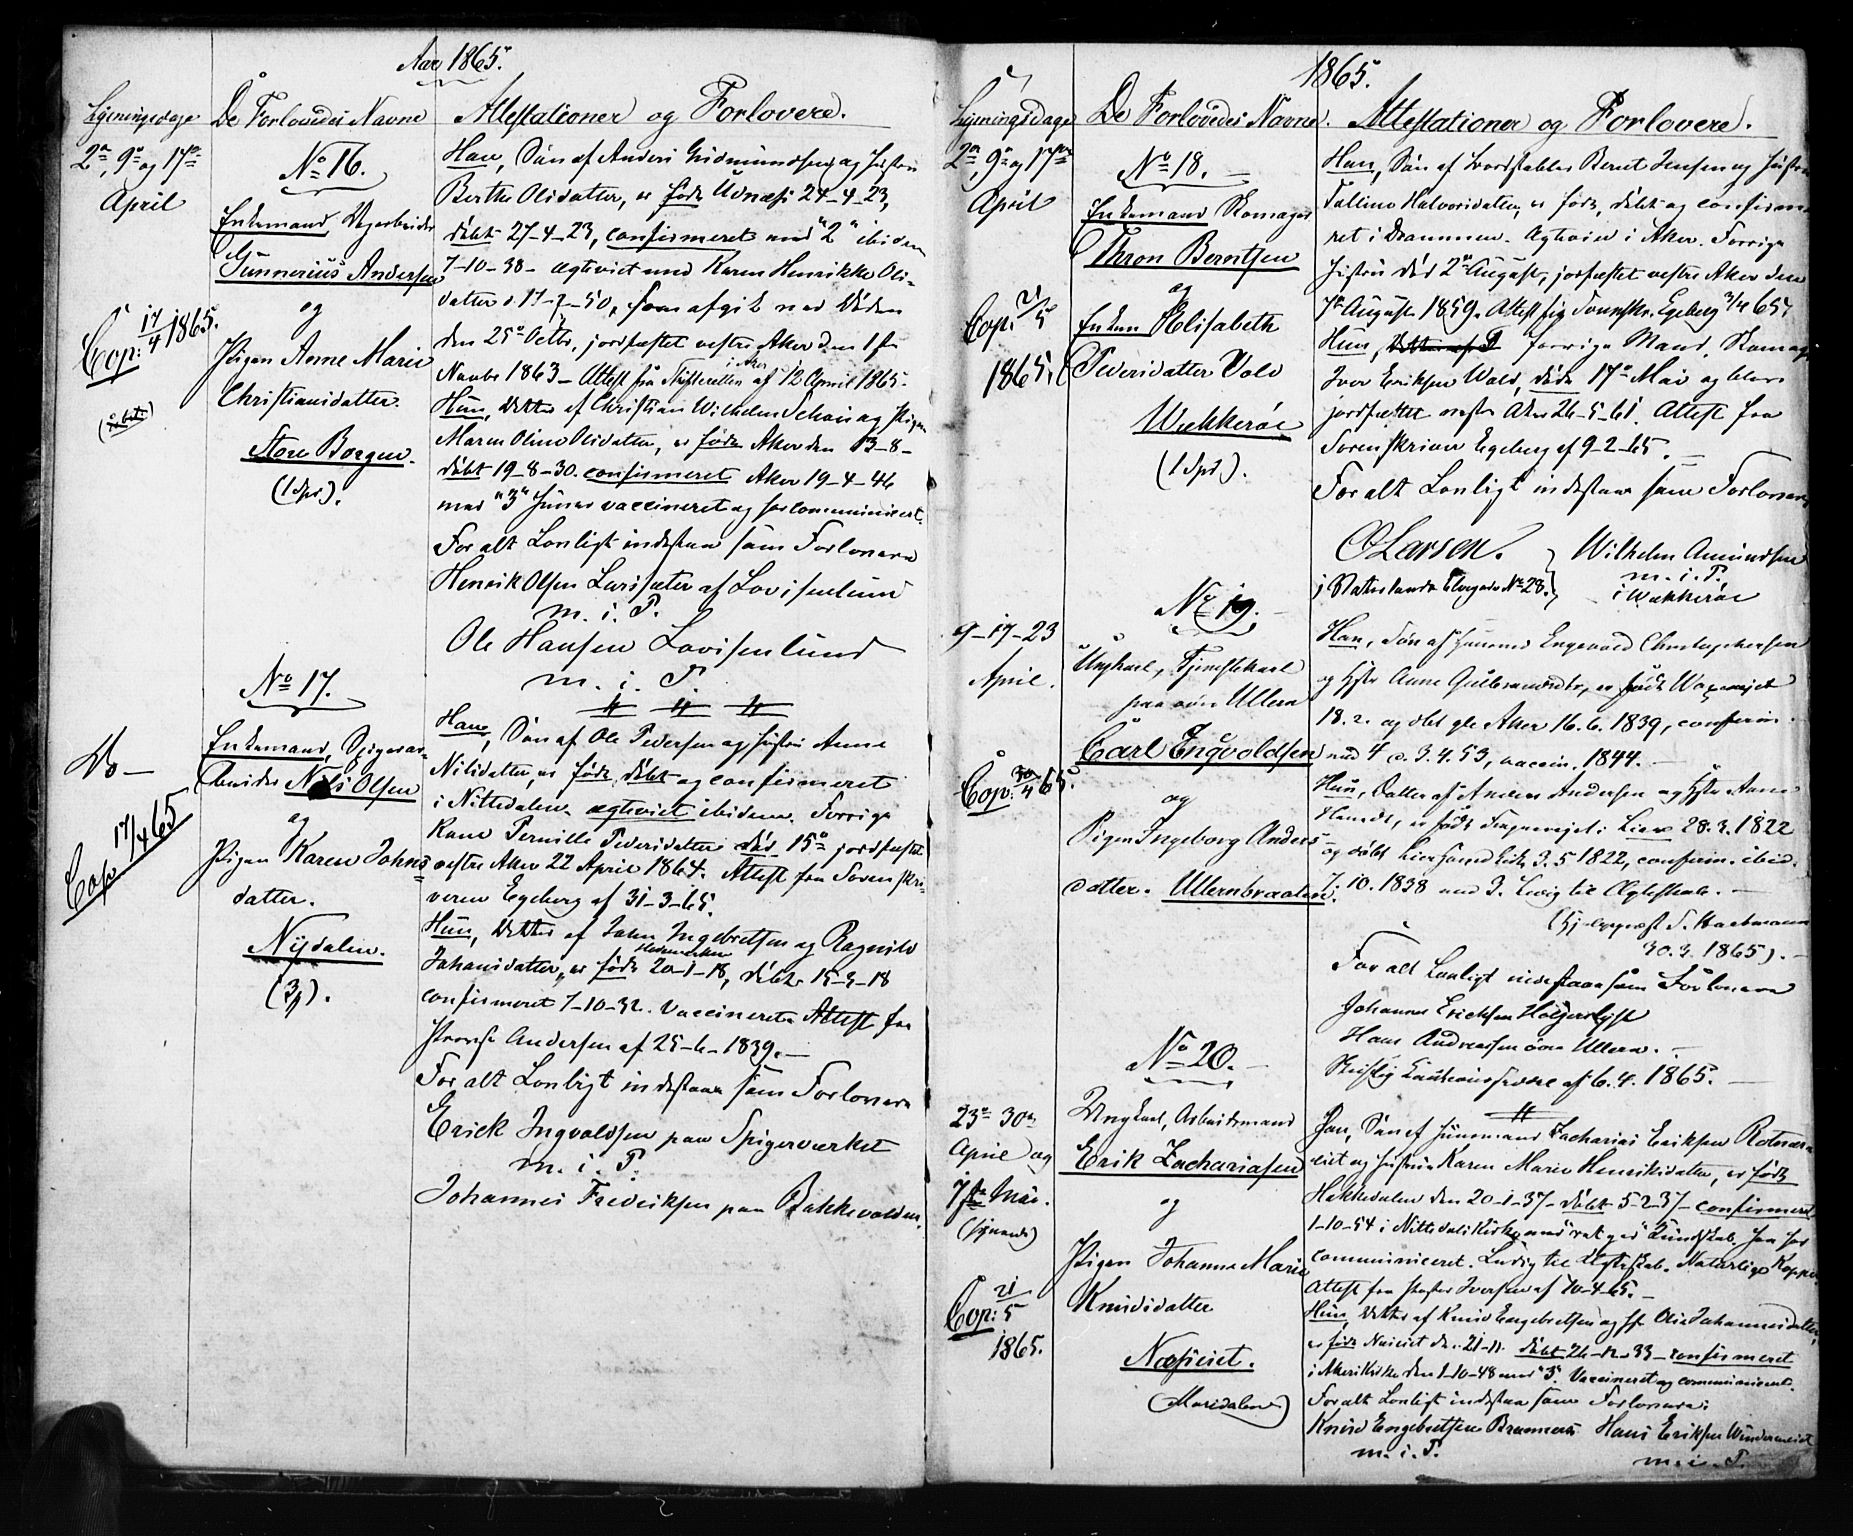 Aar 1865.
Lysningsdage
De Forlovedes Navne
Attestationer og Forlovere.
2den, 9de og 17de
April
No 16.
Enkemand,
Gunnerius Andersen
og
Pigen Anne Marie
Christiansdatter.
Store Borgen.
(1 Spd).
Cop: 17/4 1865.
Han, Søn af Anders Gudmundsen og Hustru
Berthe Olsdatter, er født 24-4-23,
døbt 27-4-23, confirmeret med "2" ibidem
7-10-38 - ægteviet med Karen Henrikke Ols-
datter som afgik ved Døden
den 25de Octbr, jordfæstet vestre Aker den 1ste
Novbr 1863 - Attest fra Skifteretten i Aker af 12 April 1865.
Hun, Datter af Christian Wilhelm og Pigen
Maren Oline Olsdatter, er født Aker den 13-8-
døbt 19-8-30. confirmeret Aker 19-4-46
med "3" vaccineret og har communiceret.
For alt Lovligt indestaae som Forlovere
Henrik Olsen af Lovisenlund
m. i. P.
Ole Hansen Lovisenlund
m. i. P.
No 17.
Do -
Cop 17/4 65
Enkemand, Spigerar-
beider Nils Olsen
og
Pigen Karen Johns-
datter.
Nydalen.
Han, Søn af Ole Pedersen og Hustru Anne
Nilsdatter, er født, døbt og confirmeret
i Nittedalen. ægteviet ibidem. Forrige
Kone Pernille Pedersdatter død 15de jordfæstet
vestre Aker 22 April 1864. Attest fra Sorenskri-
veren Egeberg af 31-3-65.
Hun, Datter af John Ingebretsen og Ragnild
Johansdatter, er født Hedemarken 20-1-18, døbt 15-3-18
confirmeret 7-10-32. Vaccineret. Attest fra
Provst Andersen af 25-6-1839.-
For alt Lovligt indestaae som Forlovere
Erick Ingvoldsen paa Spigerværket
m. i. P.
Johannes Frederiksen paa Bakkevolden.
1865.
Lysningsdage
De Forlovedes Navne.
Attestationer og Forlovere.
2den, 9de og 17de
April
No 18.
Enkemand Skomager
Thron Berntsen
og
Enken Elisabeth
Pedersdatter Vold
Wækkerøe
(1 Spd).
Cop: 21/5
1865.
Han, Søn af Bernt Jensen og Hustru
Halvorsdatter, er født, døbt og confirme-
ret i Drammen. Ægteviet i Aker. Forrige
Hustru død 2den August, jordfæstet vestre Aker den
7de August 1859. Attest fra Sorenskr. Egeberg 3/4 65.
Hun, forrige Mand, Skomager
Iver Eriksen Wold, døde 17de Mai og blev
jordfæstet vestre Aker 26-5-61. Attest fra
Sorenskriver Egeberg af 9-2-65.
For alt Lovligt indestaae som Forlovere
O Larsen.
i No 28.
Wilhelm Amundsen
m. i. P.
i Wækkerøe
No 19.
9-17-23
April.
Ungkarl, Tjenestekarl
paa øvre Ullern
Carl Engvoldsen
og
Pigen Ingeborg Anders-
datter. Ullernbraaten.
Cop: 30/4 65.
Han, Søn af Huusmand Engevold Christophersen
og Hstr Anne Gulbrandsdtr, er født
18.2. og døbt Aker 16.6.1839, confirm.
med 4 d. 3.4.53, vaccin. 1844.
Hun, Datter af Anders Andersen og Hstr Anne
er født i Lier 28.3.1822
og døbt 3.5.1822, confirm. ibid.
7.10.1838 med 3. Ledig til Ægteskab.-
30.3.1865).
For alt Lovligt indestaae som Forlovere
Johannes Ericksen
Hans Andreassen øvre Ullern.
Skriftlig af 6.4.1865.
No 20.
23de 30te
April og
7de Mai.
Ungkarl, Arbeidsmand
Erik Zachariasen
og
Pigen Johanne Marie
Knudsdatter
Næsseiet.
(Maridalen)
Cop: 21/5
1865.
Han, Søn af Huusmand Zacharias Eriksen
eiet og Hustru Karen Marie Henriksdatter, er født
Hakkedalen den 20-1-37- døbt 5-2-37- confirmeret
1-10-54 i Nittedals Kirke med Kundskab. Han har
communiceret. Ledig til Ægteskab. Naturlige Kopper.
Attest fra Iversen af 10-4-65.-
Hun, Datter af Knud Engebretsen og H. Olea Johannesdatter,
er født Næsseiet den 21-11. døbt 26-12-33- confirmeret
i Akers Kirke den 1-10-48 med "3". Vaccineret og communiceret.
For alt Lovligt indestaae som Forlovere:
Knud Engebretsen
m. i. P.
Hans Eriksen
m. i. P.